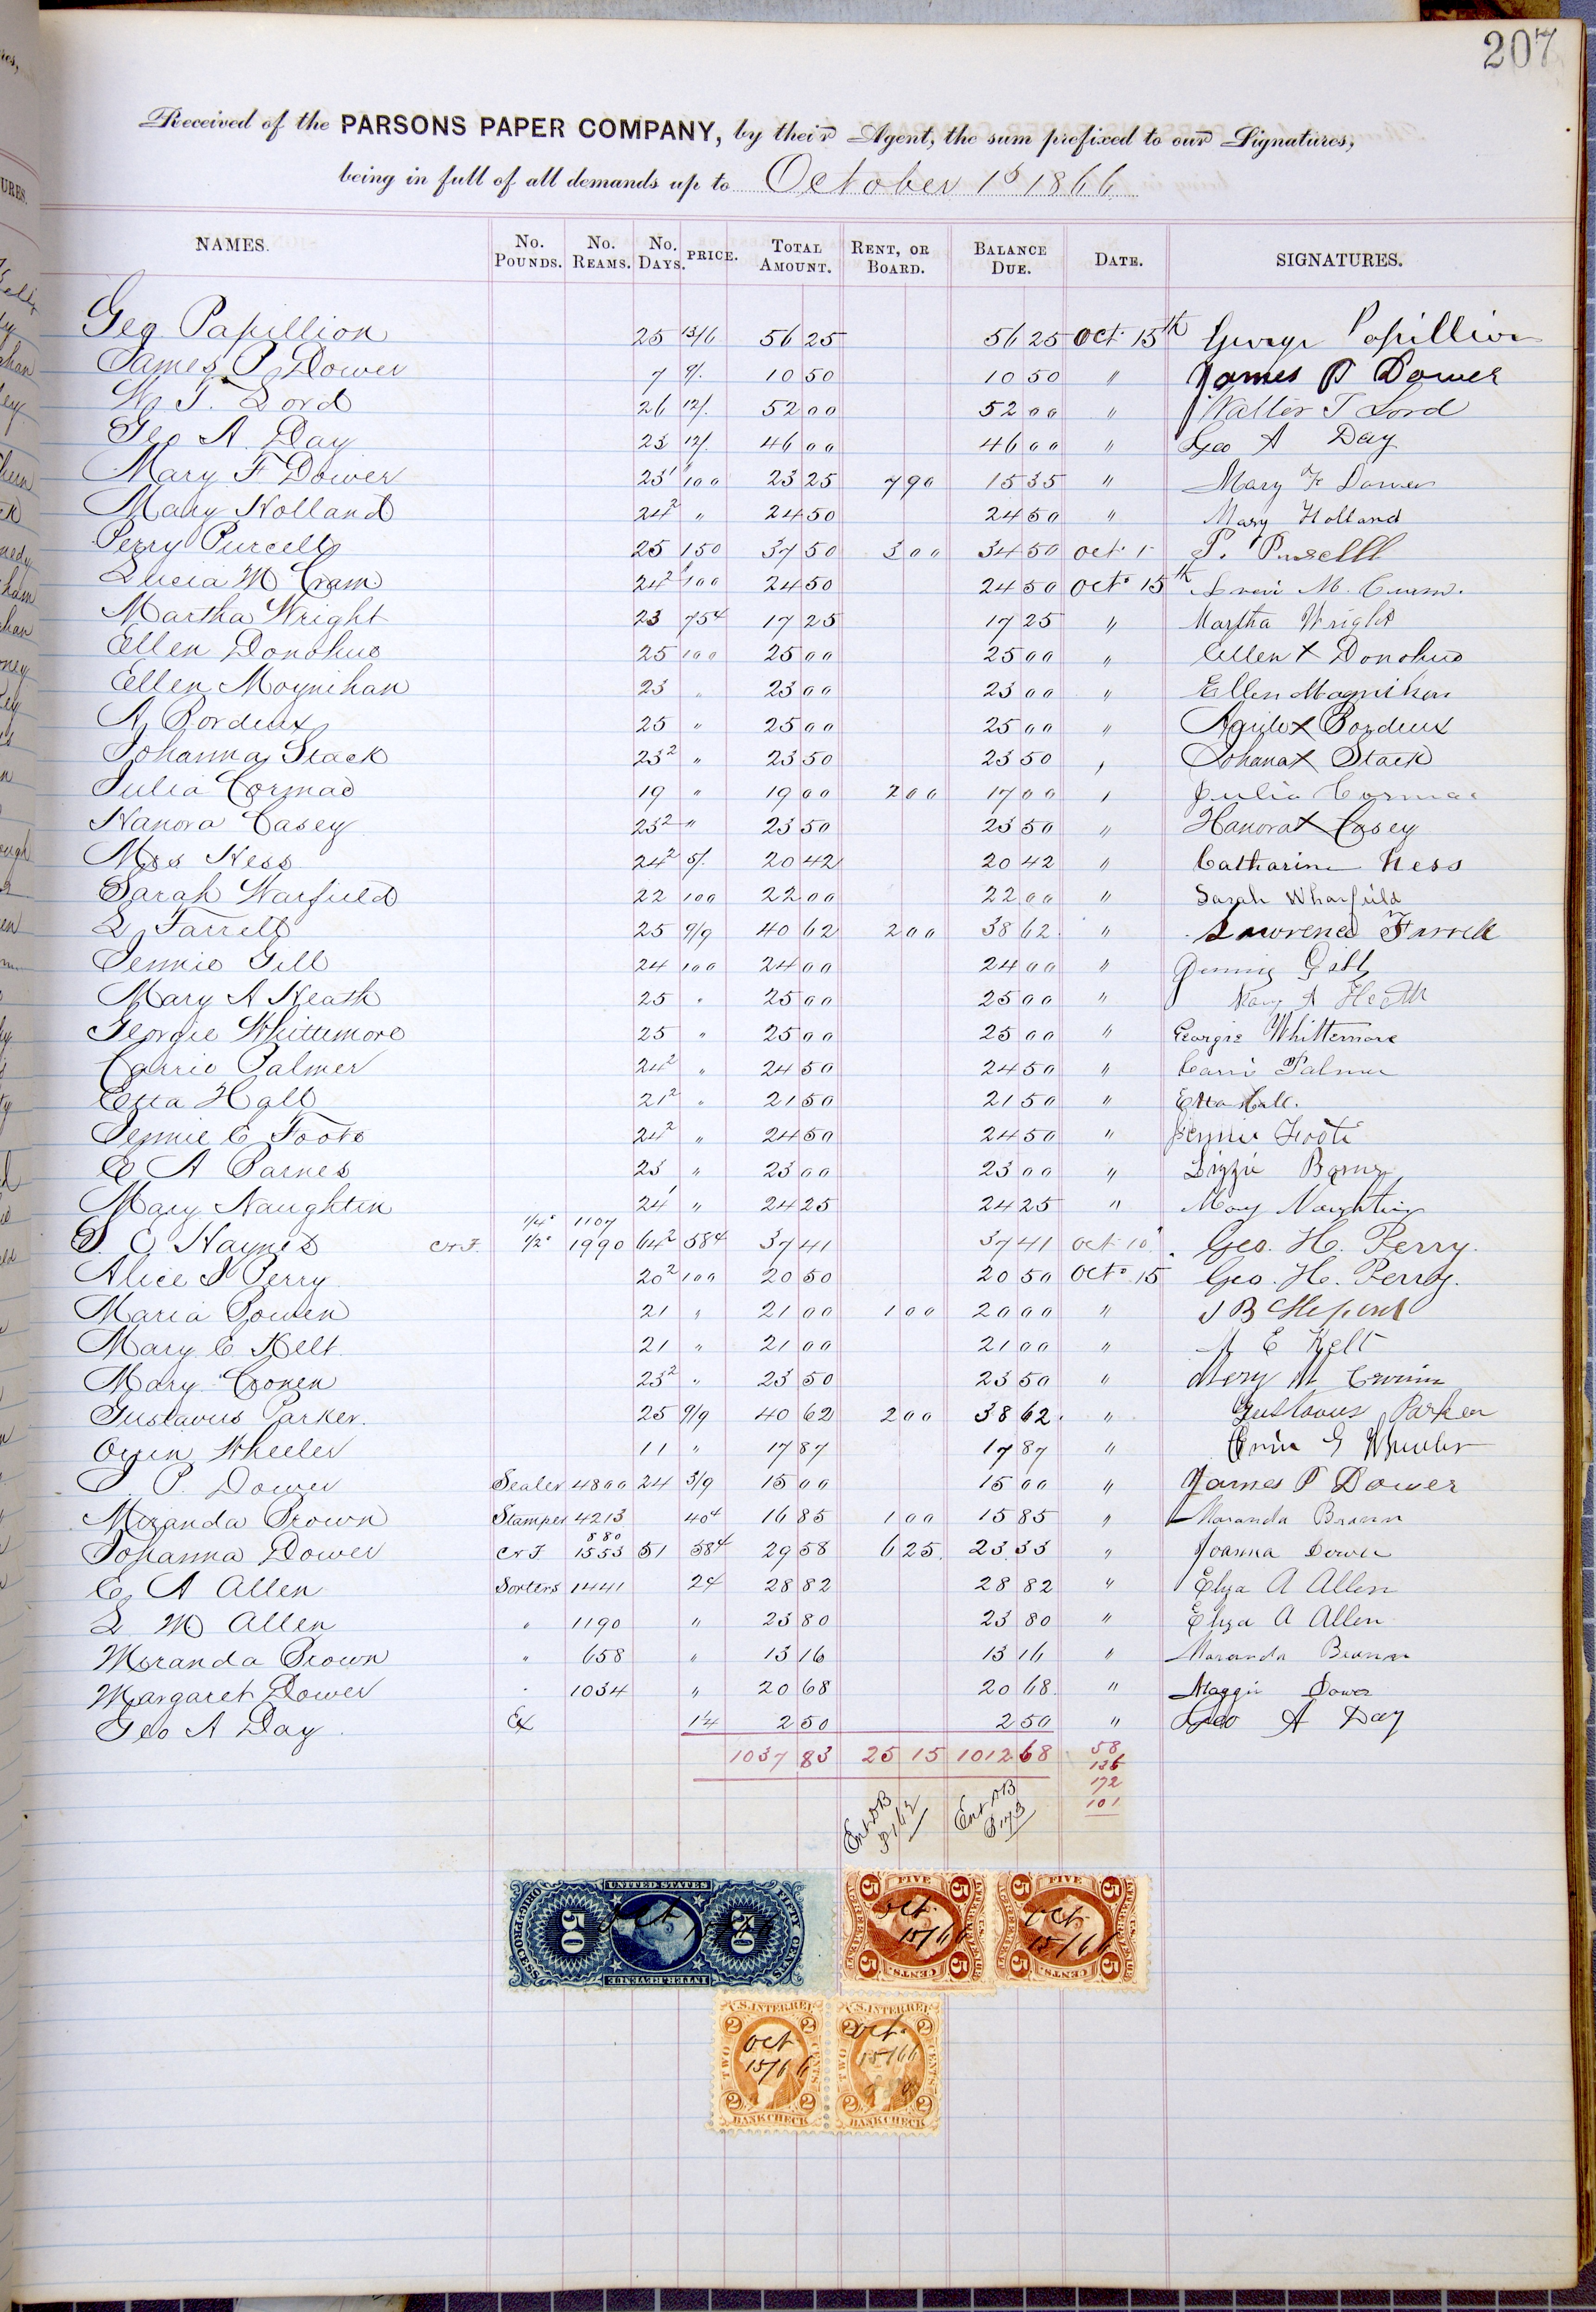 207
Received of the PARSONS PAPER COMPANY, by their Agent, the sum prefixed to our Signatures,
being in full of all demands up to October 1st 1866
NAMES. No. POUNDS. No. REAMS. No. DAYS. PRICE. TOTAL AMOUNT. RENT, OR BOARD. BALANCE DUE. DATE. SIGNATURES.
Geo Papillion 25 13/6 56 25 56 25 Oct 15th George Papillion
James P Dower 7 9/. 10 50 10 50 " James P Dower
W. T. Lord 26 12/. 52 00 52 00 " Walter T Lord
Geo A Day 23 12/. 46 00 46 00 " Geo A Day
Mary F Dower 23 1 100 23 25 7 90 15 35 " Mary F Dower
Mary Holland 24 2 " 24 50 24 50 " Mary Holland
Perry Purcell 25 150 37 50 3 00 34 50 Oct 1 P. Pursell
Lucia M Cram 24 2 100 24 50 24 50 Oct 15th M.
Martha Wright 23 75c 17 25 17 25 " Martha Wright
Ellen Donohue 25 100 25 00 25 00 " Ellen X Donohue
Ellen Moynihan 23 " 23 00 23 00 " Ellen Moynihan
A Bordeux 25 " 25 00 25 00 " X Bordeux
Johanna Stack 23 2 " 23 50 23 50 " Johana X Stack
Julia Cormac 19 " 19 00 2 00 17 00 " Julia Cormac
Hanora Casey 23 2 " 23 50 23 50 " Hanora X Casey
Mrs Hess 24 2 5/. 20 42 20 42 " Catharine Hess
Sarah Warfield 22 100 22 00 22 00 " Sarah Wharfield
L Farrell 25 9/9 40 62 2 00 38 62 " Lawrence Farrell
Jennie Gill 24 100 24 00 24 00 " Jenny Gill
Mary A Heath 25 " 25 00 25 00 " Mary A Heath
Georgie Whittemore 25 " 25 00 25 00 " Georgie Whittemore
Carrie Palmer 24 2 " 24 50 24 50 " Carrie Palmer
Etta Hall 21 2 " 21 50 21 50 " Etta Hall.
Jennie C Foote 24 2 " 24 50 24 50 " Jennie Foote
E A Barnes 23 " 23 00 23 00 " Lizzie Barnes
Mary Naughtin 24 1 " 24 25 24 25 " Mary Naughtin
1/4c 1107
S. C Haynes C&F. 1/2c 1990 64 2 58c 37 41 37 41 Oct 10 Geo. H. Perry.
Alice I Perry 20 2 100 20 50 20 50 Oct 15 Geo. H. Perry.
Maria Bowen 21 " 21 00 1 00 20 00 " J B
Mary E Kelt 21 " 21 00 21 00 " M E Kelt
Mary Cronen 23 2 " 23 50 23 50 " Mery M
Gustavus Parker. 25 9/9 40 62 2 00 38 62. " Gustavus Parker
Orin Wheeler 11 " 17 87 17 87 " Orin G Wheeler
J. P. Dower Sealer 4800 24 3/9 15 00 15 00 " James P Dower
Miranda Brown Stamper 4213 40c 16 85 1 00 15 85 " Maranda Brown
880
Johanna Dower C&F 1553 51 58c 29 58 6 25 23 33 " Joanna Dower
E A Allen Sorters 1441 2c 28 82 28 82 " Eliza A Allen
L M Allen " 1190 " 23 80 23 80 " Eliza A Allen
Miranda Brown " 658 " 13 16 13 16 " Maranda Brown
Margaret Dower " 1034 " 20 68 20 68 " Maggie Dower
Geo A Day Ex 1/4 2 50 2 50 " Geo A Day
1037 83 25 15 1012 68 58
136
172
101
Ent DB P162
Ent DB P173
UNITED STATES
FIFTY CENTS
50 50
INTER. REVENUE
Oct 15/66
FIVE CENTS
5 5 5 5
Oct 15/66
FIVE CENTS
5 5 5 5
Oct 15/66
U.S. INTER. REV.
TWO CENTS
2 2 2 2
BANK CHECK
Oct 15/66
U.S. INTER. REV.
TWO CENTS
2 2 2 2
BANK CHECK
Oct 15/66